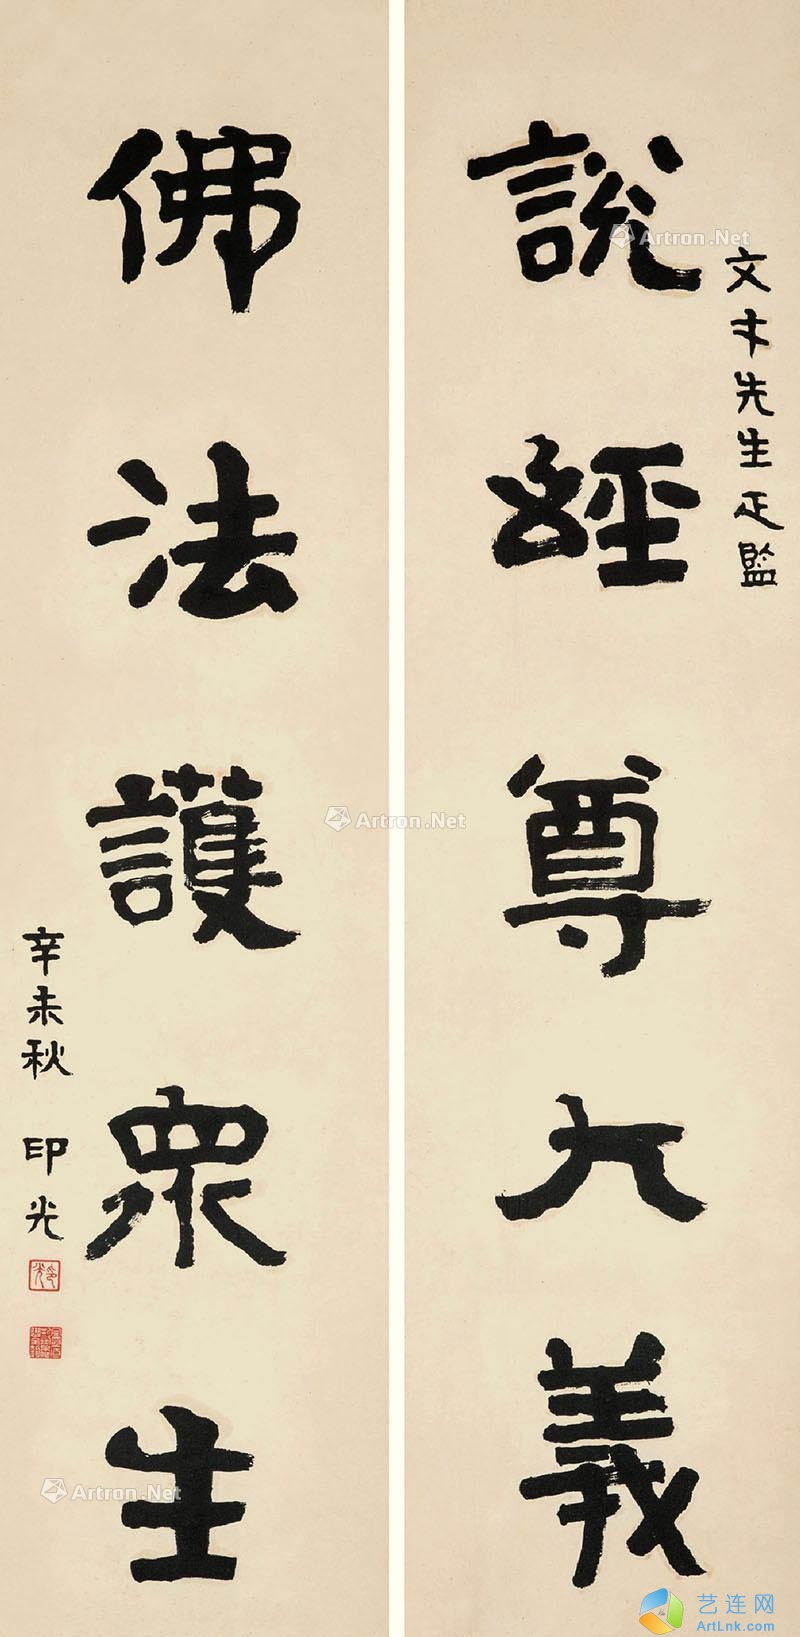 文木先生正監
說經尊大義
佛法護眾生
辛未秋 印光
印光
Artron.Net
Artron.Net
Artron.Net
艺连网
ArtLnk.com